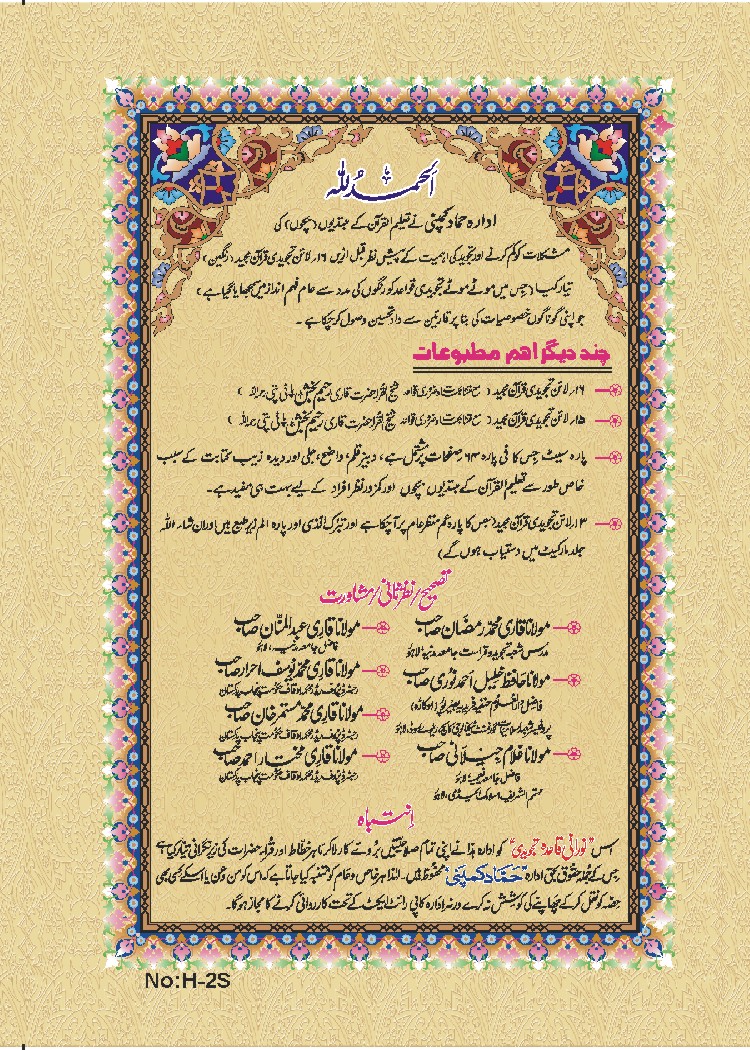 اَلحمدُ للہ
ادارہ حماد کمپنی نے تعلیم القرآن کے مبتدیوں (بچوں) کی
مشکلات کو کم کرنے اور تجوید کی اہمیت کے پیش نظر قبل ازیں ۱۶۔ لائن تجویدی قرآن مجید (رنگین)
تیار کیا (جس میں موٹے موٹے تجویدی قواعد کو رنگوں کی مدد سے عام فہم انداز میں سمجھایا گیا ہے)
جو اپنی گوناگوں خصوصیات کی بنا پر قارئین سے داد تحسین وصول کر چکا ہے۔
چند دیگر اہم مطبوعات
۱۶۔ لائن تجویدی قرآن مجید ( شیخ القرا حضرت قاری رحیم بخش پانی پتی )
۱۵۔ لائن تجویدی قرآن مجید ( شیخ القرا حضرت قاری رحیم بخش پانی پتی )
پارہ سیٹ جس کا فی پارہ ۶۴ صفحات پر مشتمل ہے، دبیز قلم، واضع، جلی اور دیدہ زیب کتابت کے سبب
خاص طور سے تعلیم القرآن کے مبتدیوں بچوں اور کمزور نظر افراد کے لیے بہت ہی مفید ہے۔
۱۳۔ لائن تجویدی قرآن مجید (جس کا پارہ عم منظر عام پر آ چکا ہے اور تبرک الذی اور پارہ الم زیر طبع ہیں اور ان شاء اللہ
جلد مارکیٹ میں دستیاب ہوں گے)
تصحیح/نظر ثانی/مشاورت
مولانا قاری محمد رمضان صاحب
مدرس شعبہ تجوید و قراءت جامعہ مدنیہ لاہور
مولانا حافظ خلیل احمد نوری صاحب
مولانا غلام جیلانی صاحب
فاضل جامعہ نعیمیہ لاہور
مولانا قاری عبد المنان صاحب
فاضل جامعہ مدنیہ، لاہور
مولانا قاری محمد یوسف احرار صاحب
رجسٹرڈ پروف ریڈر محکمہ اوقاف حکومت پنجاب پاکستان
مولانا قاری محمد مستمر خان صاحب
رجسٹرڈ پروف ریڈر محکمہ اوقاف حکومت پنجاب پاکستان
مولانا قاری مختار احمد صاحب
رجسٹرڈ پروف ریڈر محکمہ اوقاف حکومت پنجاب پاکستان
اِنتباہ
اس "نورانی قاعدہ تجویدی" کو ادارہ ہذا نے اپنی تمام صلاحیتیں بروئے کار لا کر ماہر خطاط اور قراء حضرات کی زیر نگرانی تیار کیا ہے
جس کے جملہ حقوق بحق ادارہ "حمّاد کمپنی" محفوظ ہیں۔ لہٰذا ہر خاص و عام کو متنبہ کیا جاتا ہے کہ اس کو من و عن یا اسکے کسی بھی
حصہ کو نقل کر کے چھاپنے کی کوشش نہ کرے ورنہ ادارہ کاپی رائٹ ایکٹ کے تحت کارروائی کرنے کا مجاز ہوگا۔
No:H-2S